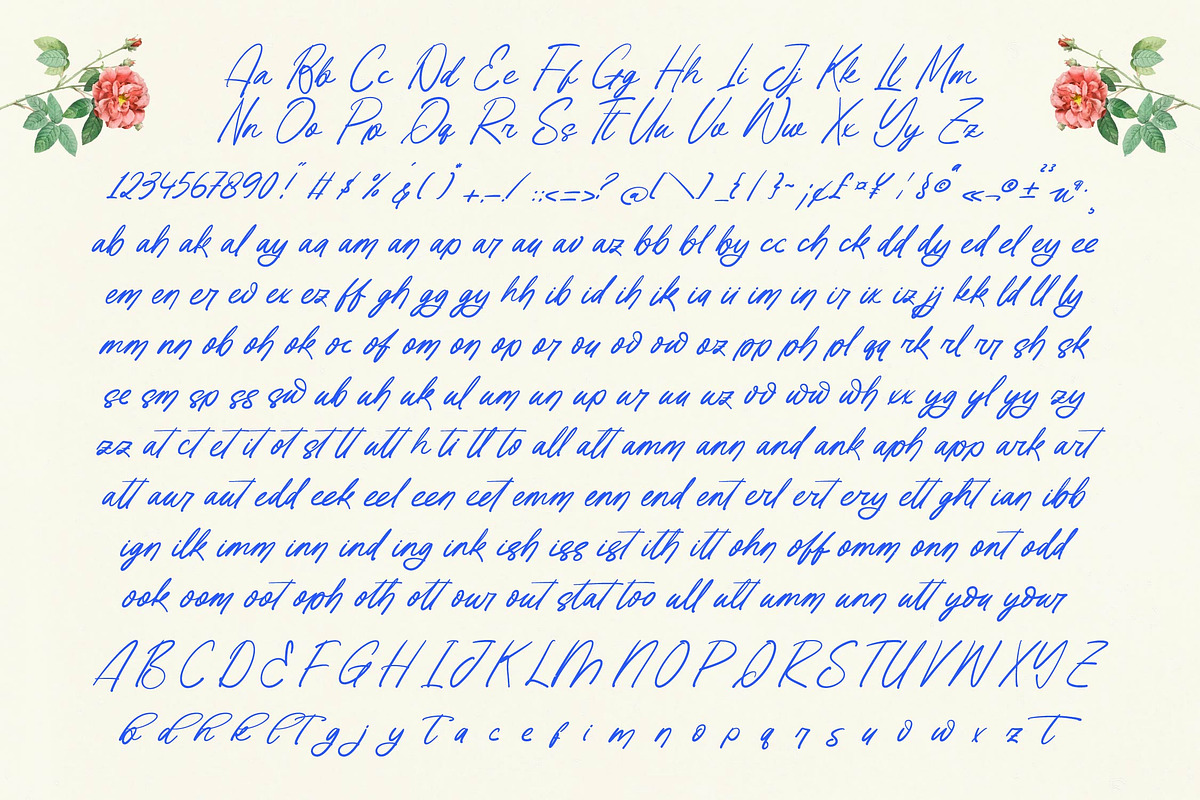 Aa Bb Cc Dd Ee Ff Gg Hh Ii Jj Kk Ll Mm
Nn Oo Pp Qq Rr Ss Tt Uu Vv Ww Xx Yy Zz
1234567890!" # $ % & ' ( ) * + , - . / : ; < = > ? @ [ \ ] _ { | } ~ ¡ ¢ £ ¤ ¥ ¦ § © ª « ¬ ® ± ² ³
ab ah ak al ay aa am an ap ar au av az bb bl by cc ch ck dd dy ed el ey ee
em en er ev ex ez ff gh gg gy hh ib id ih ik ia ii im in ir ix iz jj kk ld ll ly
mm nn ob oh ok oc of om on op or ou ov ow oz pp ph pl qq rk rl rr sh sk
se sm sp ss sw ub uh uk ul um un up ur uu uz vv ww wh xx yg yl yy zy
zz at ct et it ot st tt utt h ti tl to all att amm ann and ank aph app ark art
att aur aut edd eek eel een eet emm enn end ent erl ert ery ett ght ian ibb
ign ilk imm inn ind ing ink ish iss ist ith itt ohn off omm onn ont odd
ook oom oot oph oth ott our out stat too ull ult umm unn utt you your
A B C D E F G H I J K L M N O P Q R S T U V W X Y Z
b d h k l T g j y T a c e f i m n o p q r s u v w x z T